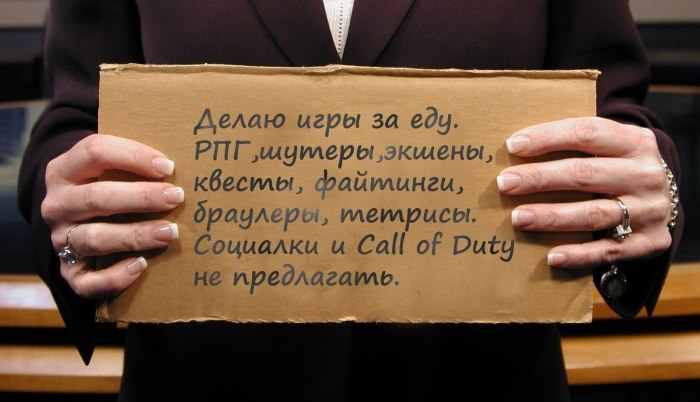 Делаю игры за еду.
РПГ,шутеры,экшены,
квесты, файтинги,
браулеры, тетрисы.
Социалки и Call of Duty
не предлагать.